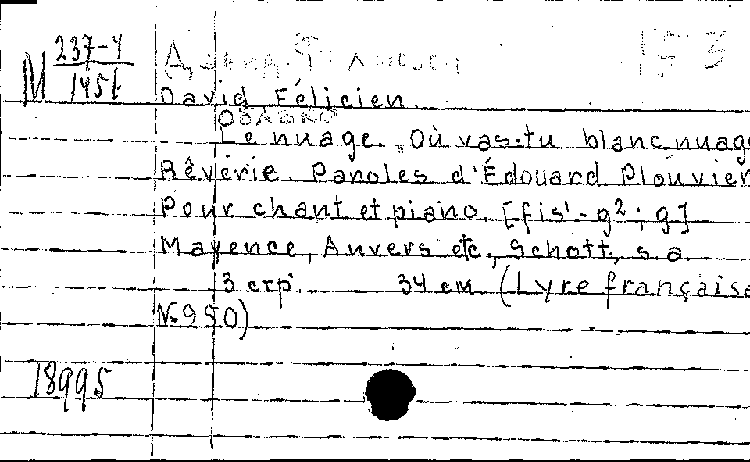 M 237-4
1451
David Félicien.
Le nuage. „Où vas-tu blanc nuage
Rêverie. Paroles d'Édouard Plouvier
Pour chant et piano. [fis¹-g²; g]
Mayence, Anvers etc., Schott, s. a.
3 стр. 34 см (Lyre française
N. 950)
18995